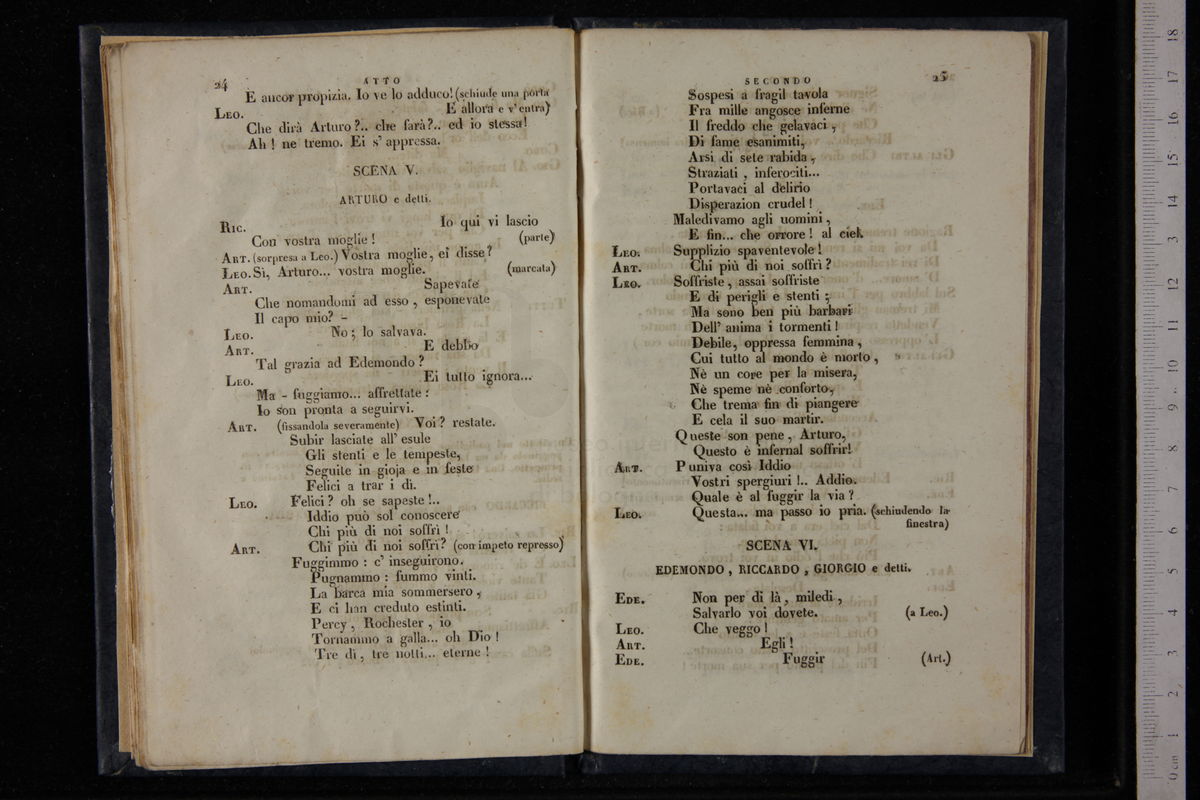 24
ATTO
E ancor propizia. Io ve lo adduco! (schiude una porta
LEO. E allora e v' entra)
Che dirà Arturo?.. che farà?.. ed io stessa!
Ah! ne tremo. Ei s' appressa.
SCENA V.
ARTURO e detti.
RIC. Io qui vi lascio
Con vostra moglie! (parte)
ART. (sorpresa a Leo.) Vostra moglie, ei disse?
LEO. Sì, Arturo... vostra moglie. (marcata)
ART. Sapevate
Che nomandomi ad esso, esponevate
Il capo mio? -
LEO. No; lo salvava.
ART. E debbo
Tal grazia ad Edemondo?
LEO. Ei tutto ignora...
Ma - fuggiamo... affrettate:
Io son pronta a seguirvi.
ART. (fissandola severamente) Voi? restate.
Subir lasciate all' esule
Gli stenti e le tempeste,
Seguite in gioja e in feste
Felici a trar i dì.
LEO. Felici? oh se sapeste!..
Iddio può sol conoscere
Chi più di noi soffrì!
ART. Chi più di noi soffrì? (con impeto represso)
Fuggimmo: c' inseguirono.
Pugnammo: fummo vinti.
La barca mia sommersero,
E ci han creduto estinti.
Percy, Rochester, io
Tornammo a galla... oh Dio!
Tre dì, tre notti... eterne!
SECONDO
25
Sospesi a fragil tavola
Fra mille angosce inferne
Il freddo che gelavaci,
Di fame esanimiti,
Arsi di sete rabida,
Straziati, inferociti...
Portavaci al delirio
Disperazion crudel!
Maledivamo agli uomini,
E fin... che orrore! al ciel.
LEO. Supplizio spaventevole!
ART. Chi più di noi soffrì?
LEO. Soffriste, assai soffriste
E di perigli e stenti;
Ma sono ben più barbari
Dell' anima i tormenti!
Debile, oppressa femmina,
Cui tutto al mondo è morto,
Nè un core per la misera,
Nè speme nè conforto,
Che trema fin di piangere
E cela il suo martir.
Queste son pene, Arturo,
Questo è infernal soffrir!
ART. Puniva così Iddio
Vostri spergiuri!.. Addio.
Quale è al fuggir la via?
LEO. Questa... ma passo io pria. (schiudendo la
finestra)
SCENA VI.
EDEMONDO, RICCARDO, GIORGIO e detti.
EDE. Non per di là, miledi,
Salvarlo voi dovete. (a Leo.)
LEO. Che veggo!
ART. Egli!
EDE. Fuggir (Art.)